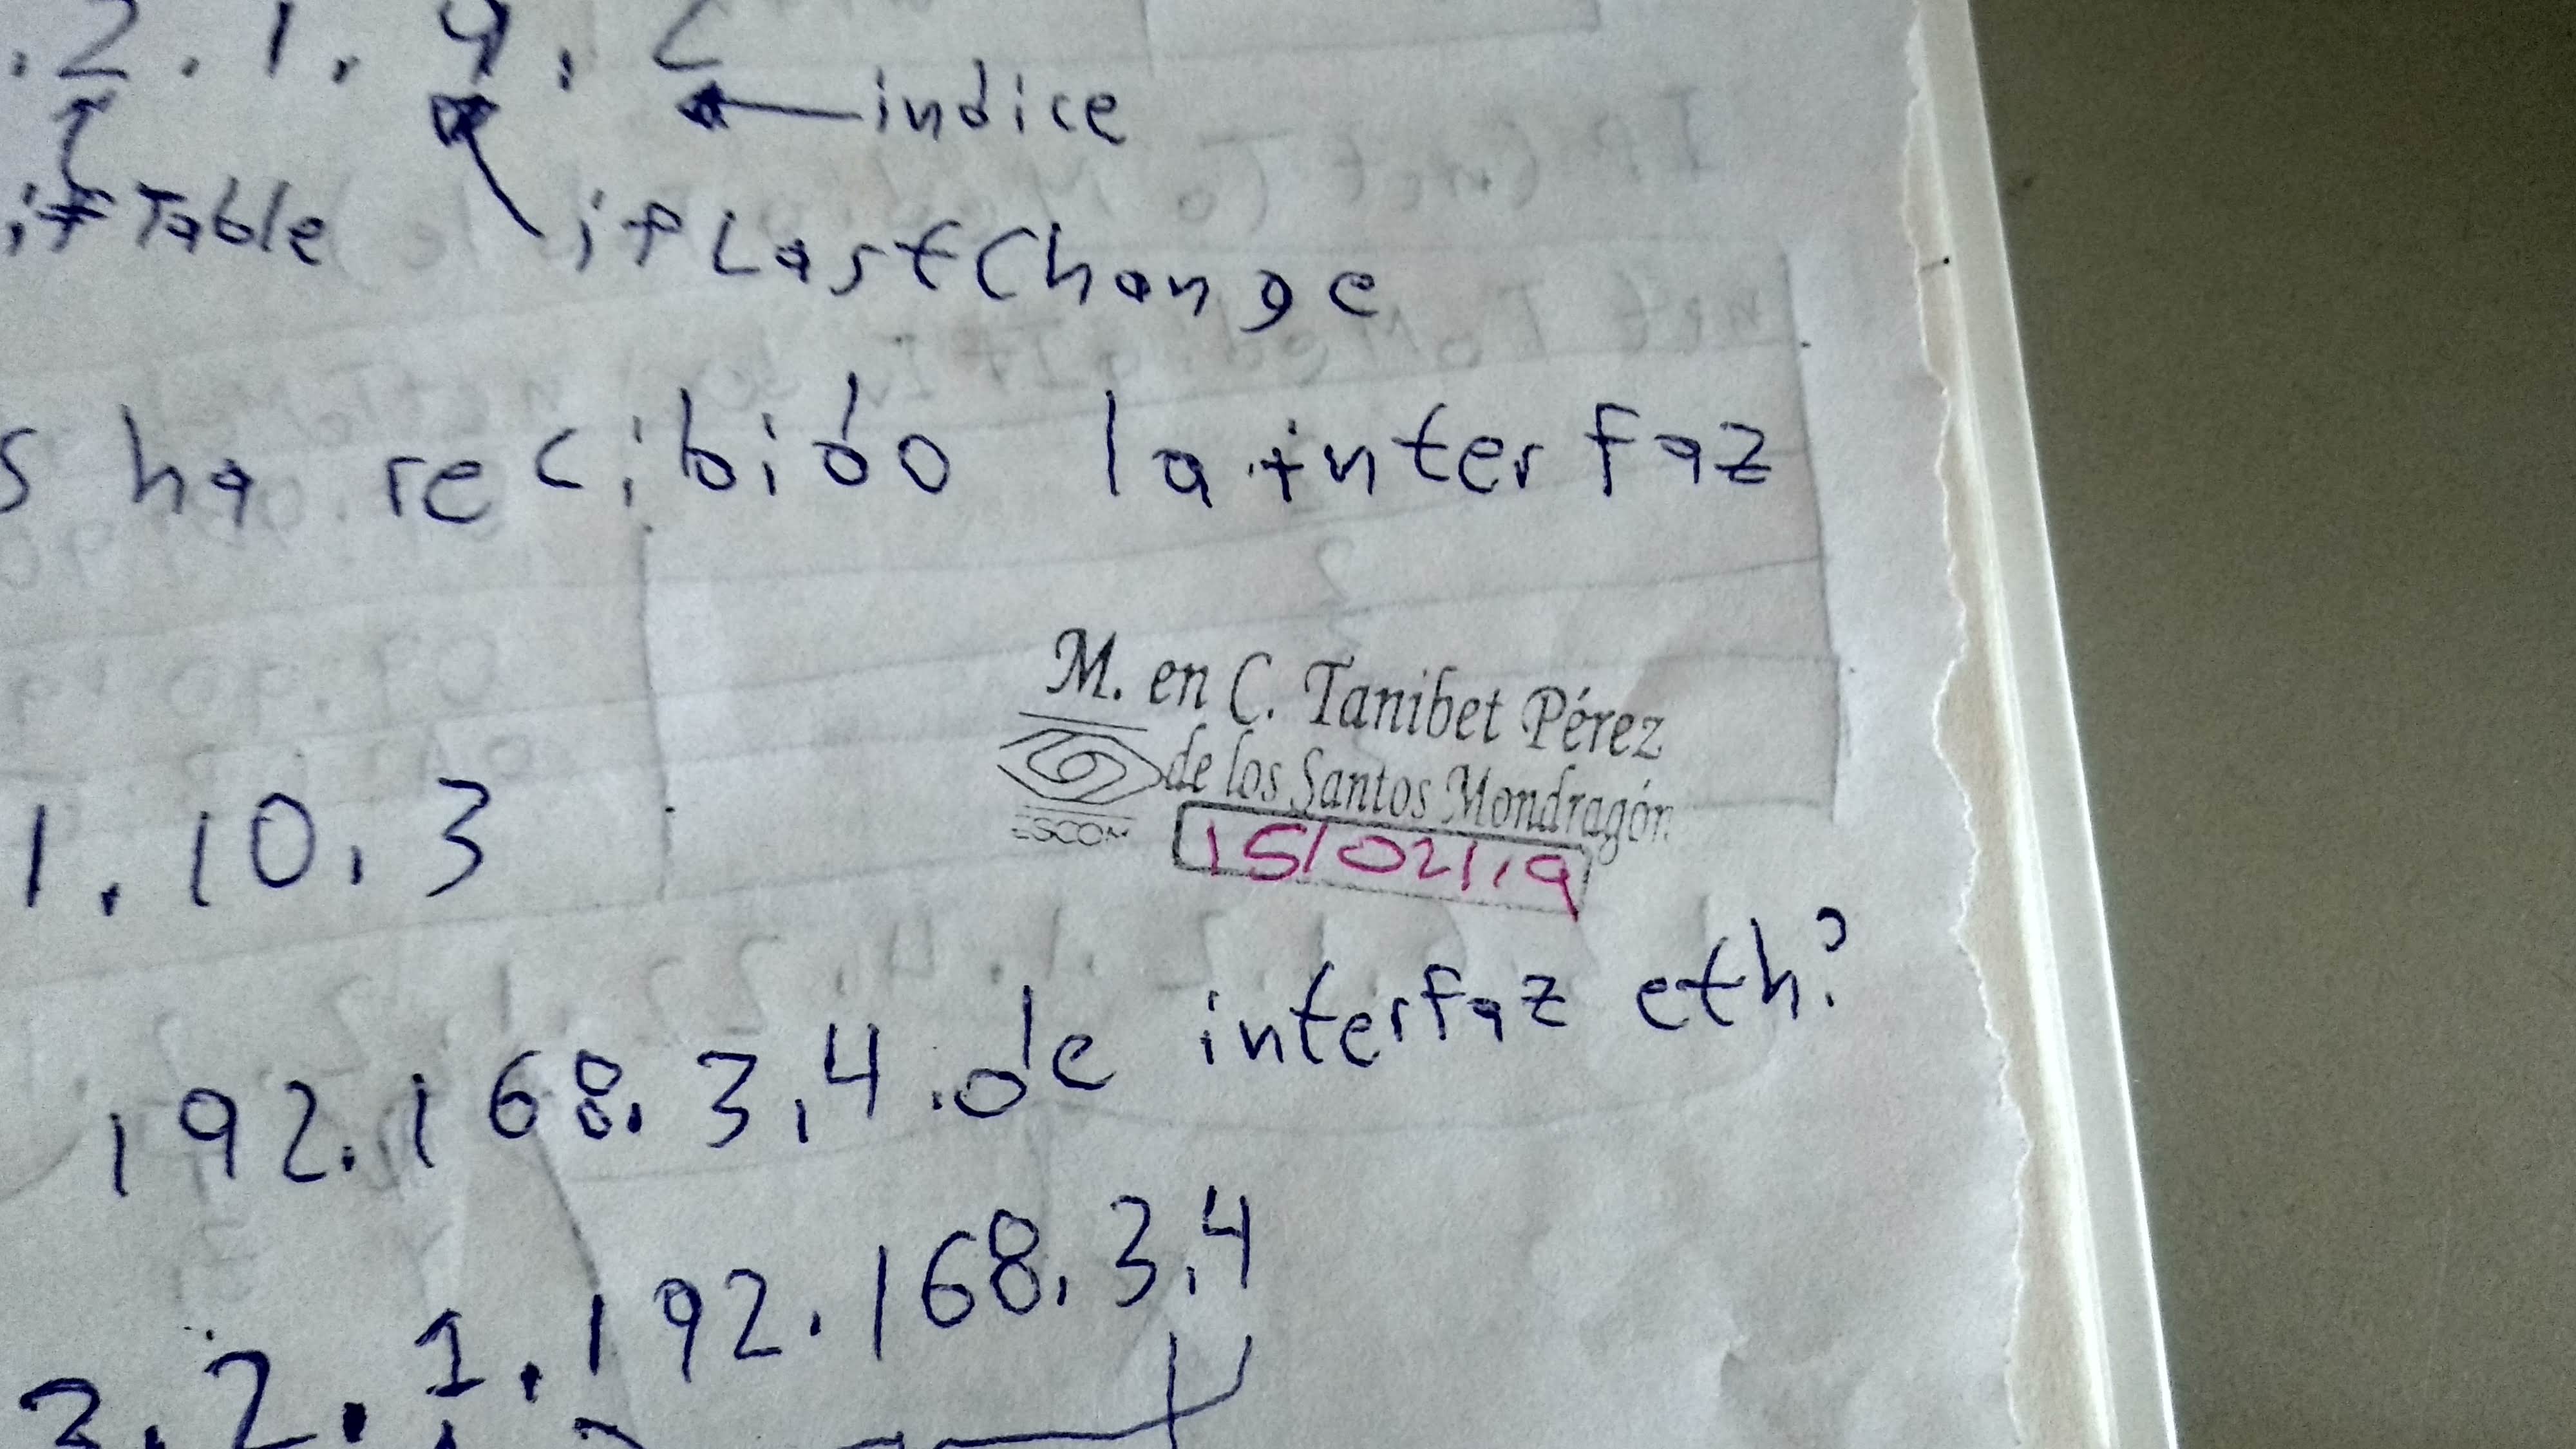 .2.1.9.2
← indice
ifTable
ifLastChange
s ha recibido la interfaz
M. en C. Tanibet Pérez
de los Santos Mondragón
ESCOM
15/02/19
1.10.3
192.168.3.4 de interfaz eth?
3.2.1.192.168.3.4